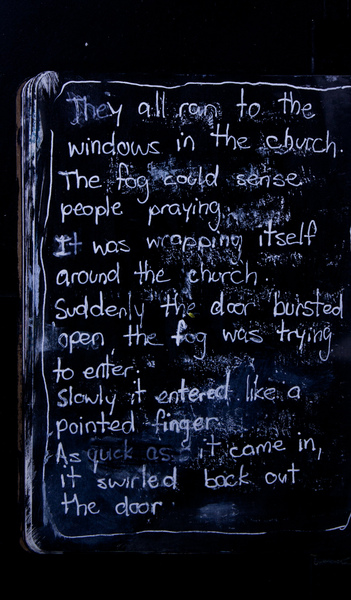 They all ran to the
windows in the church.
The fog could sense
people praying.
It was wrapping itself
around the church
Suddenly the door bursted
open, the fog was trying
to enter.
Slowly it entered like a
pointed finger.
As quick as it came in,
it swirled back out
the door.